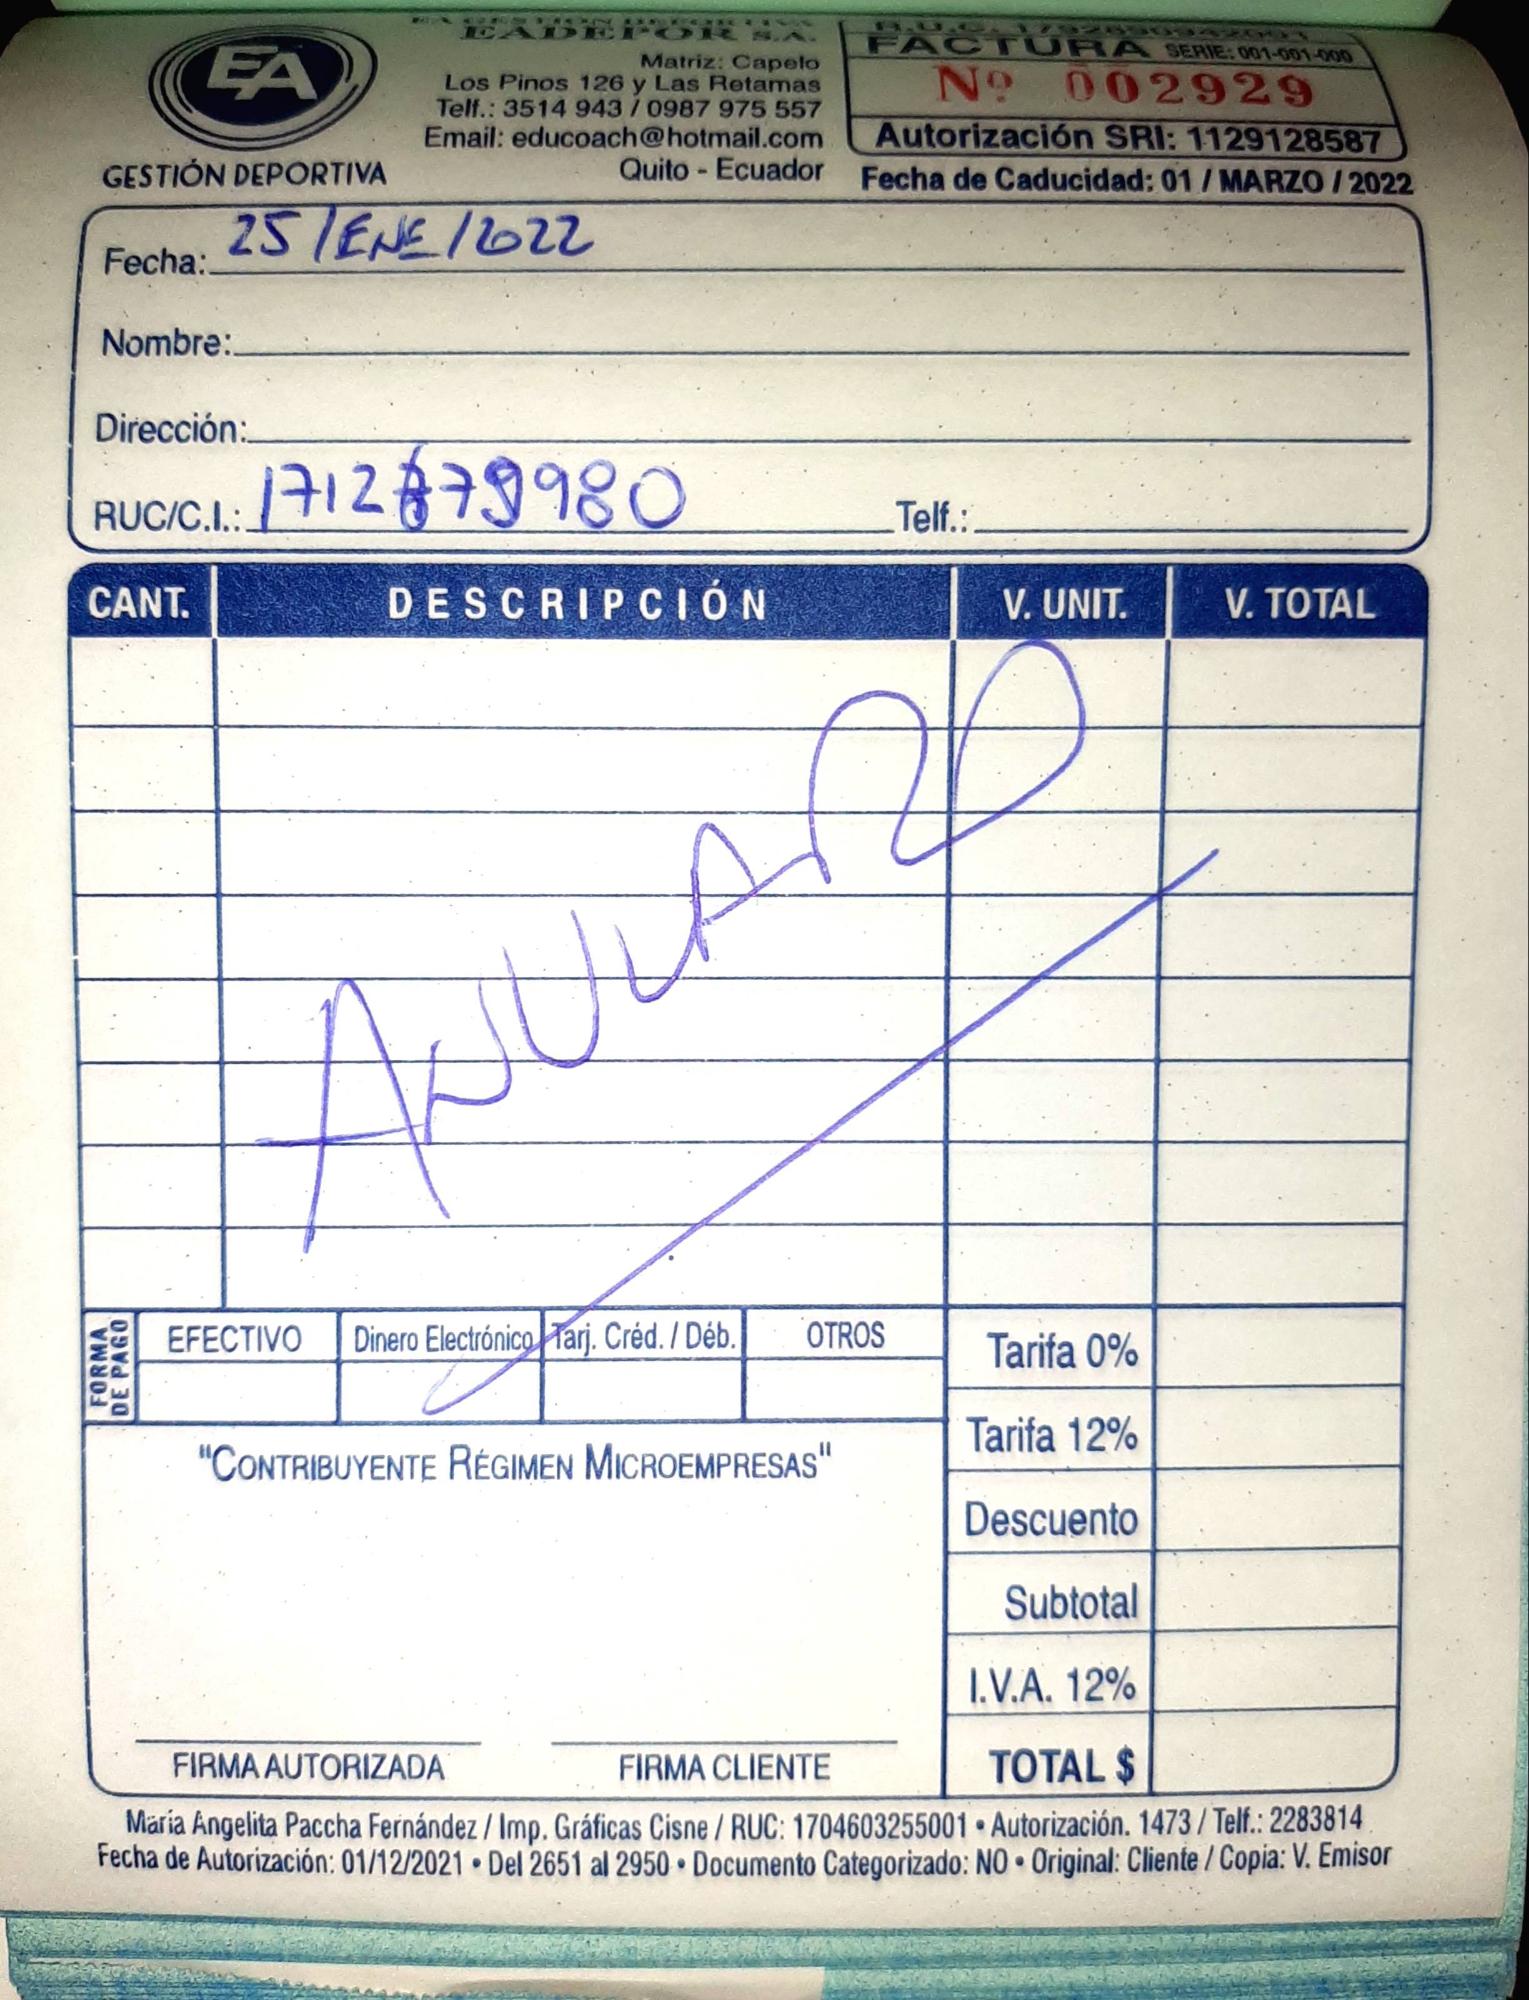 EA
GESTIÓN DEPORTIVA
EA GESTIÓN DEPORTIVA
EADEPOR S.A.
Matriz: Capelo
Los Pinos 126 y Las Retamas
Telf.: 3514 943 / 0987 975 557
Email: educoach@hotmail.com
Quito - Ecuador
R.U.C.
FACTURA SERIE: 001-001-000
Nº 002929
Autorización SRI: 1129128587
Fecha de Caducidad: 01 / MARZO / 2022
Fecha: 25 / ENE / 2022
Nombre:
Dirección:
RUC/C.I.: Telf.:
CANT. DESCRIPCIÓN V. UNIT. V. TOTAL
ANULADO
FORMA DE PAGO
EFECTIVO Dinero Electrónico Tarj. Créd. / Déb. OTROS
"CONTRIBUYENTE RÉGIMEN MICROEMPRESAS"
Tarifa 0%
Tarifa 12%
Descuento
Subtotal
I.V.A. 12%
TOTAL $
FIRMA AUTORIZADA FIRMA CLIENTE
María Angelita Paccha Fernández / Imp. Gráficas Cisne / RUC: 1704603255001 • Autorización. 1473 / Telf.: 2283814
Fecha de Autorización: 01/12/2021 • Del 2651 al 2950 • Documento Categorizado: NO • Original: Cliente / Copia: V. Emisor